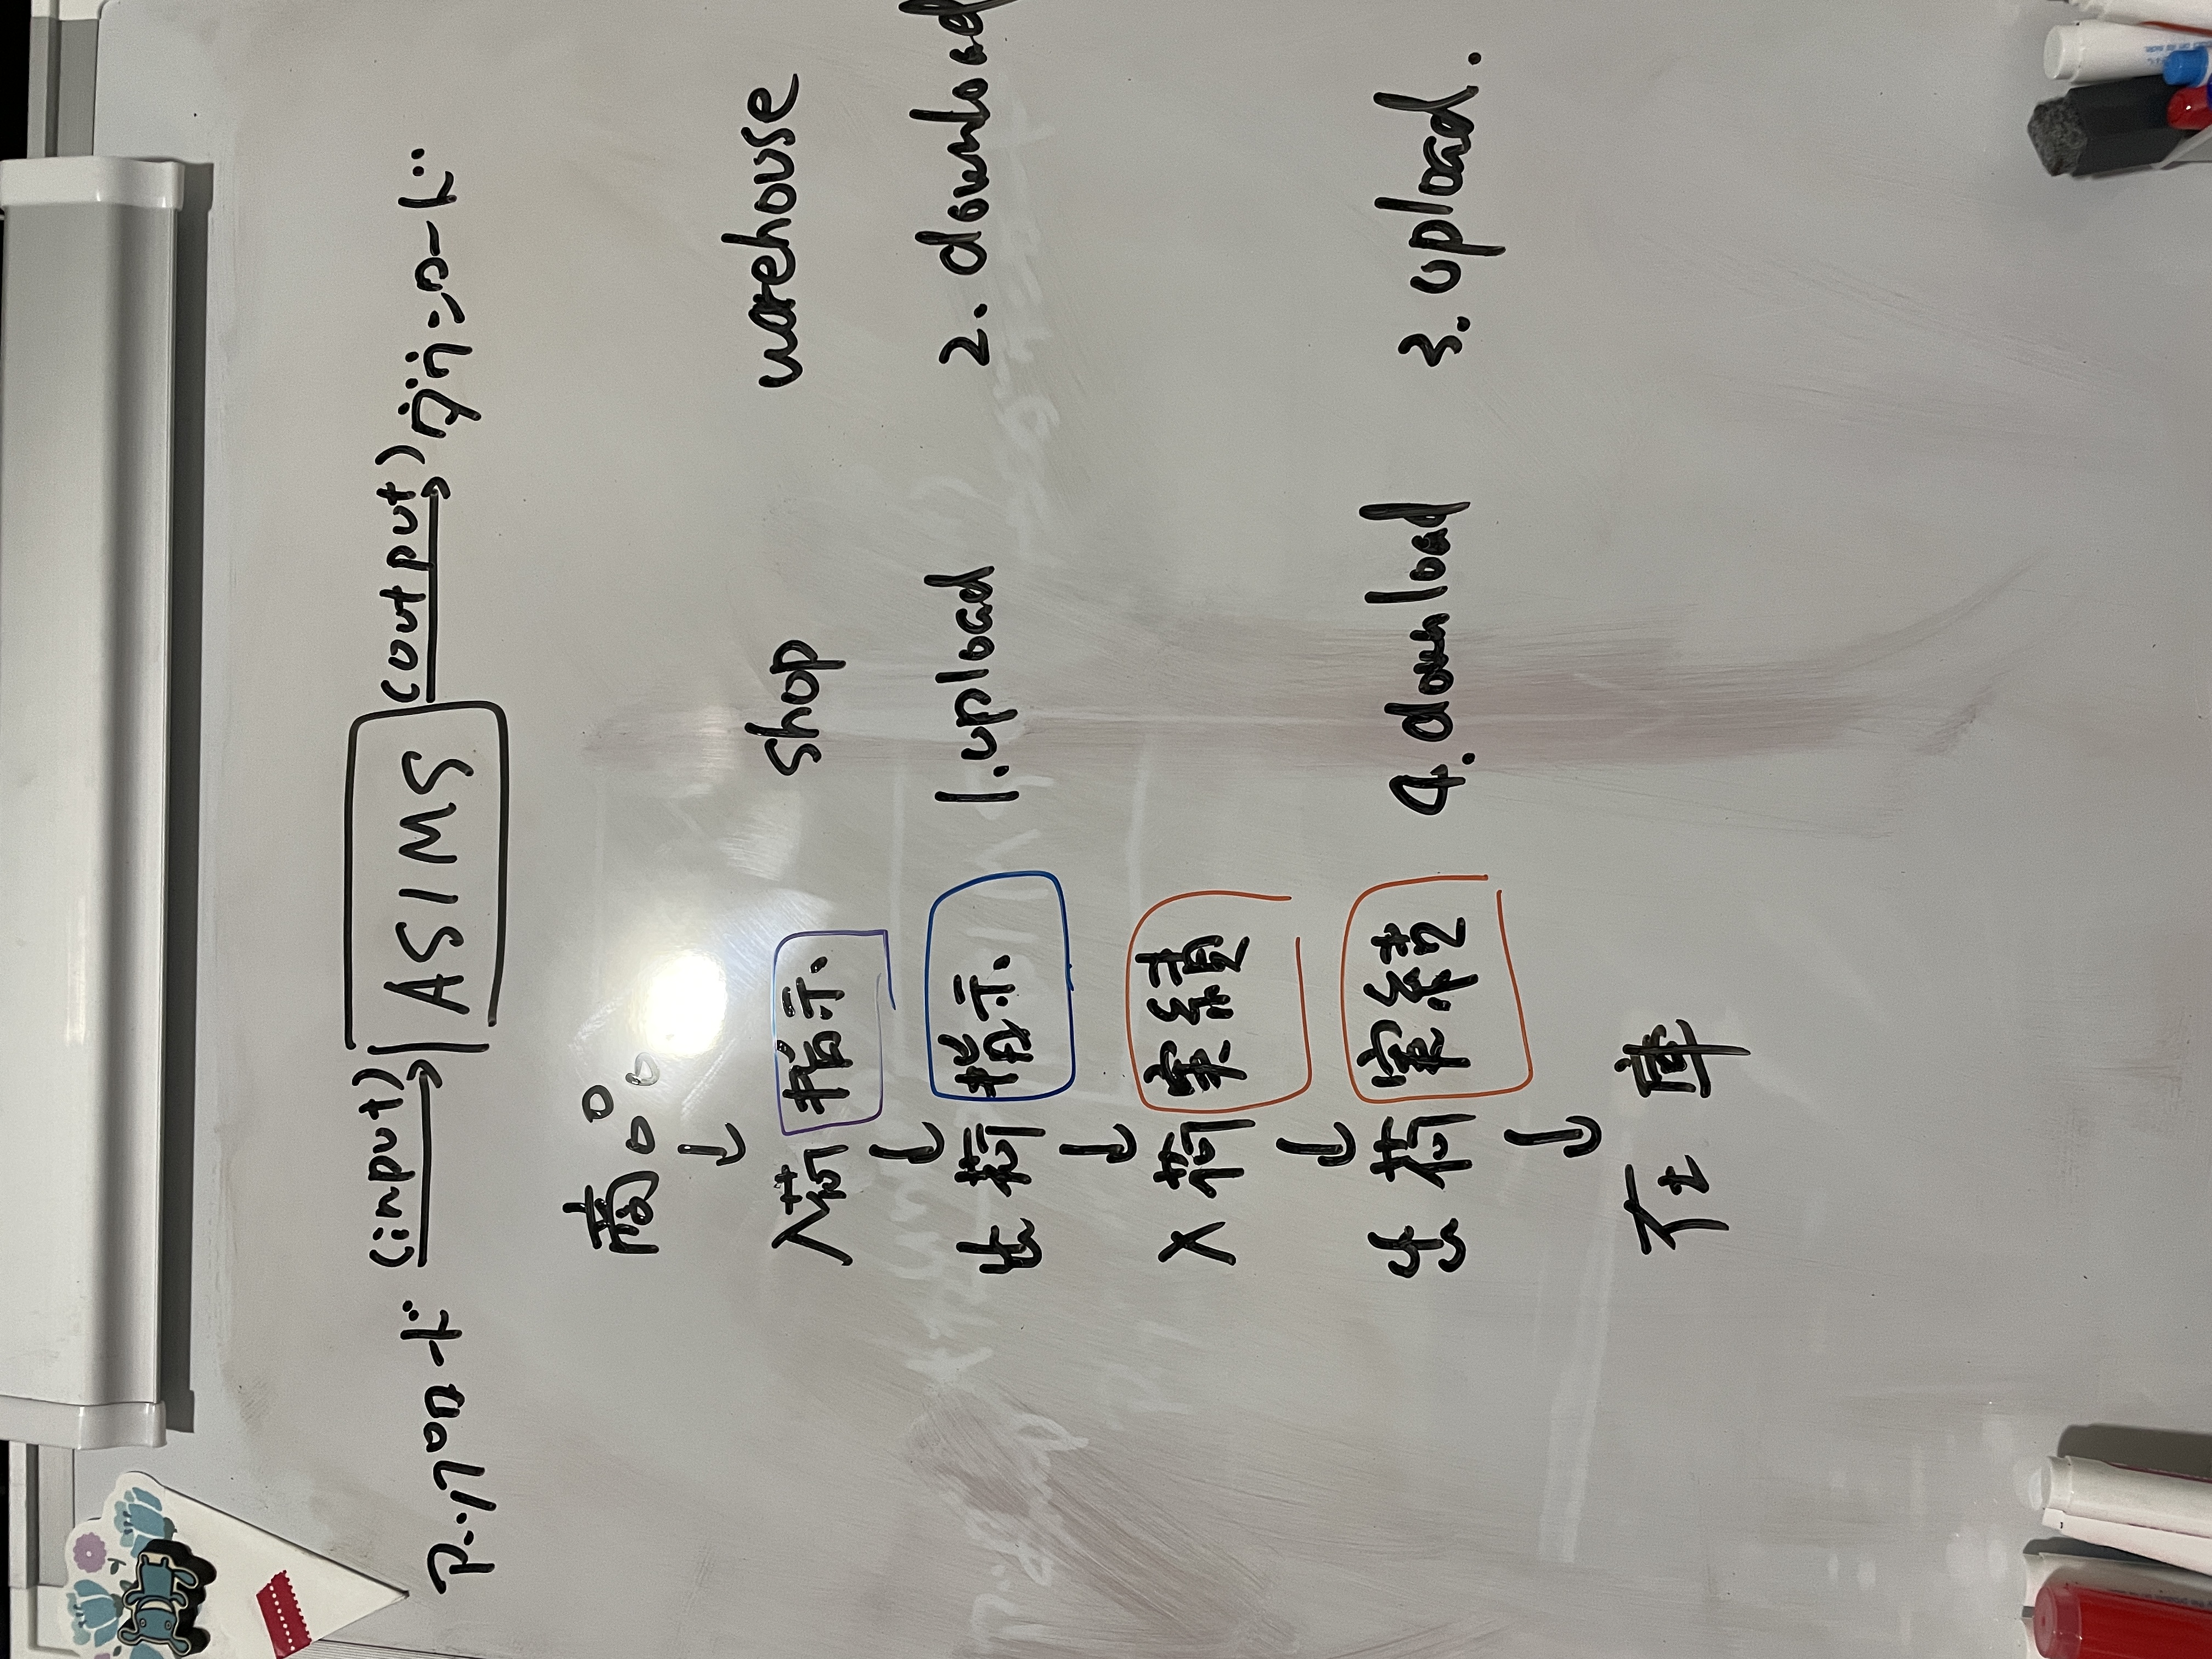 アップロード (input) ASIMS (output) ダウンロード
商品
↓
shop warehouse
入荷 指示
↓
出荷 指示 1. upload 2. download
↓
入荷 実績
↓
出荷 実績 4. download 3. upload.
↓
在庫